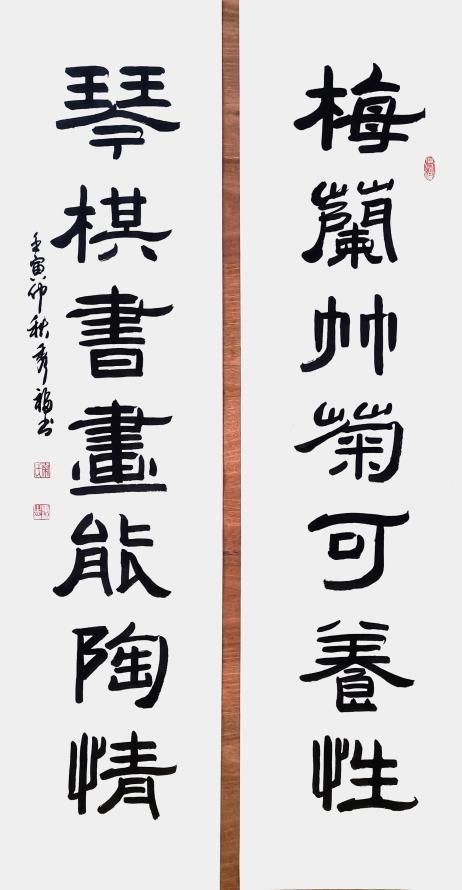 梅蘭竹菊可養性
琴棋書畫能陶情
壬寅仲秋福书